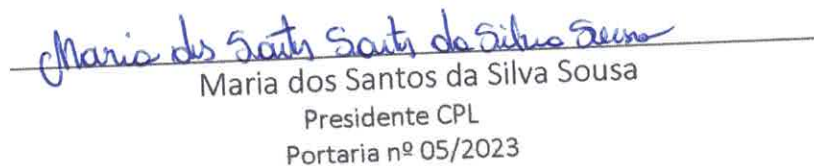 Maria dos Santos Santos da Silva Sousa
Maria dos Santos da Silva Sousa
Presidente CPL
Portaria nº 05/2023